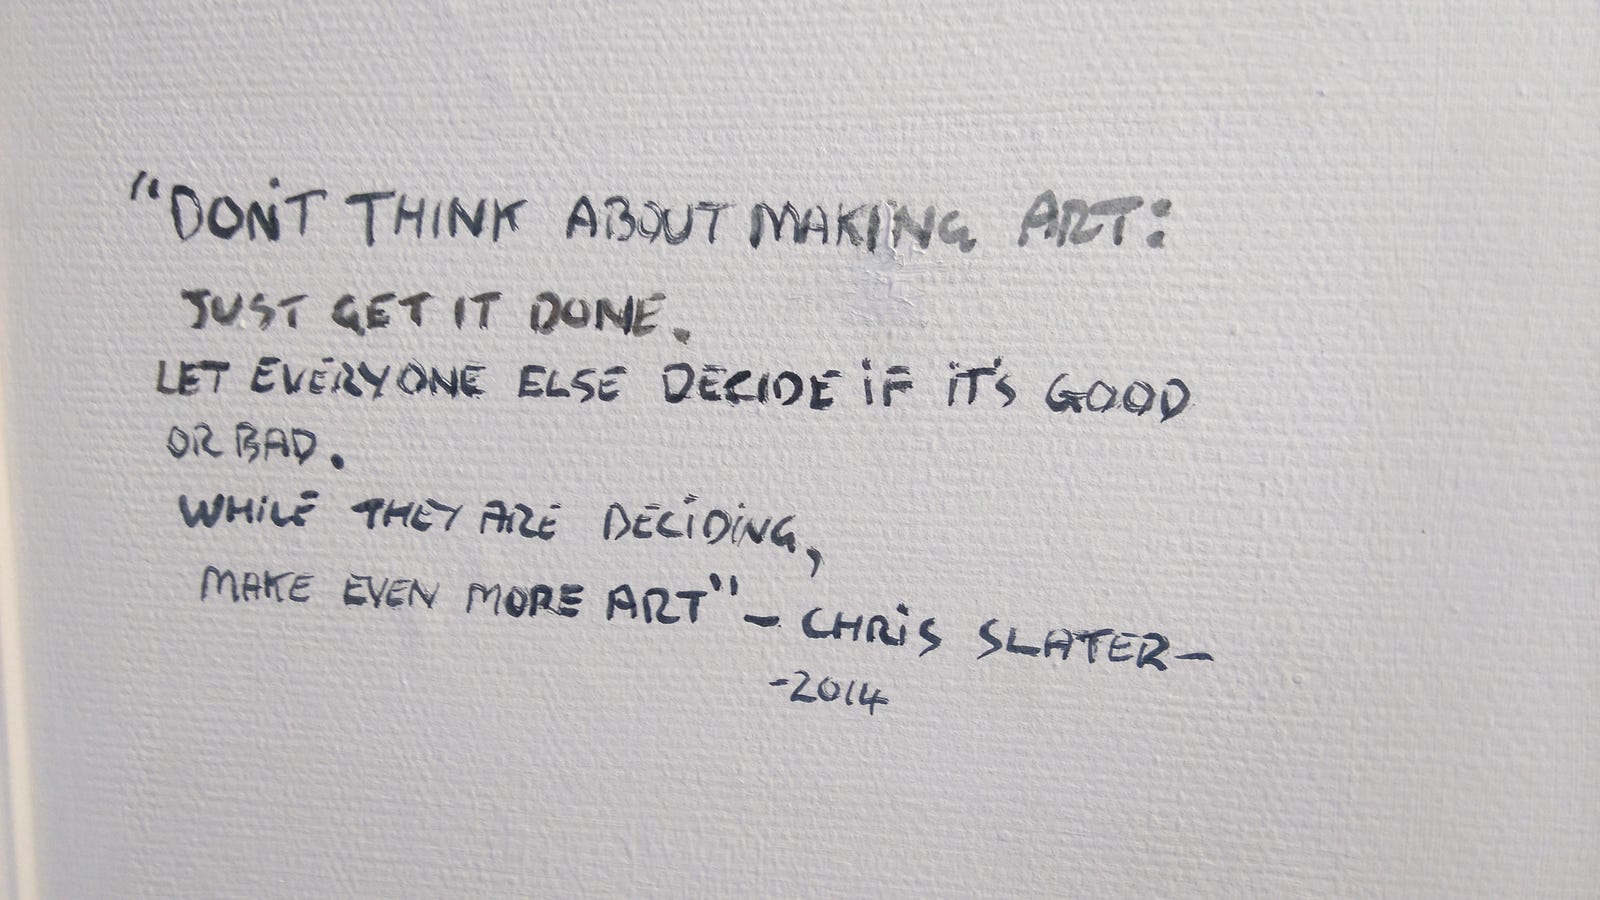 "DON'T THINK ABOUT MAKING ART:
JUST GET IT DONE.
LET EVERYONE ELSE DECIDE IF IT'S GOOD
OR BAD.
WHILE THEY ARE DECIDING,
MAKE EVEN MORE ART" - CHRIS SLATER -
-2014